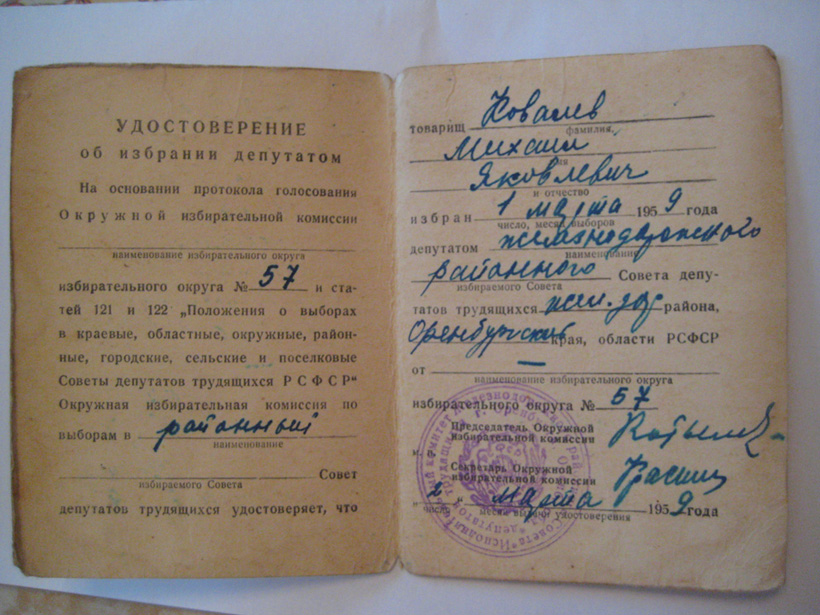 УДОСТОВЕРЕНИЕ
об избрании депутатом
На основании протокола голосования
Окружной избирательной комиссии
наименование избирательного округа
избирательного округа № 57 и ста-
тей 121 и 122 „Положения о выборах
в краевые, областные, окружные, район-
ные, городские, сельские и поселковые
Советы депутатов трудящихся РСФСР“
Окружная избирательная комиссия по
выборам в районный
наименование
Совет
избираемого Совета
депутатов трудящихся удостоверяет, что
товарищ Ковалев
фамилия,
Михаил
имя
Яковлевич
и отчество
избран 1 марта 1959 года
число, месяц выборов
депутатом железнодорожного
наименование
районного Совета депу-
избираемого Совета
татов трудящихся жел. дор района,
Оренбургской края, области РСФСР
от —
наименование избирательного округа
избирательного округа № 57
Председатель Окружной
избирательной комиссии
Секретарь Окружной
избирательной комиссии
„2“ марта 1959 года
число, месяц выдачи удостоверения